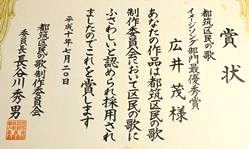 賞状
都筑区民の歌
イメージソング部門最優秀賞
広井 茂 様
あなたの作品は都筑区民の歌
制作委員会において区民の歌に
ふさわしいと認められ採用され
ましたのでこれを賞します
平成十年七月二〇日
都筑区民の歌制作委員会
委員長 長谷川秀男